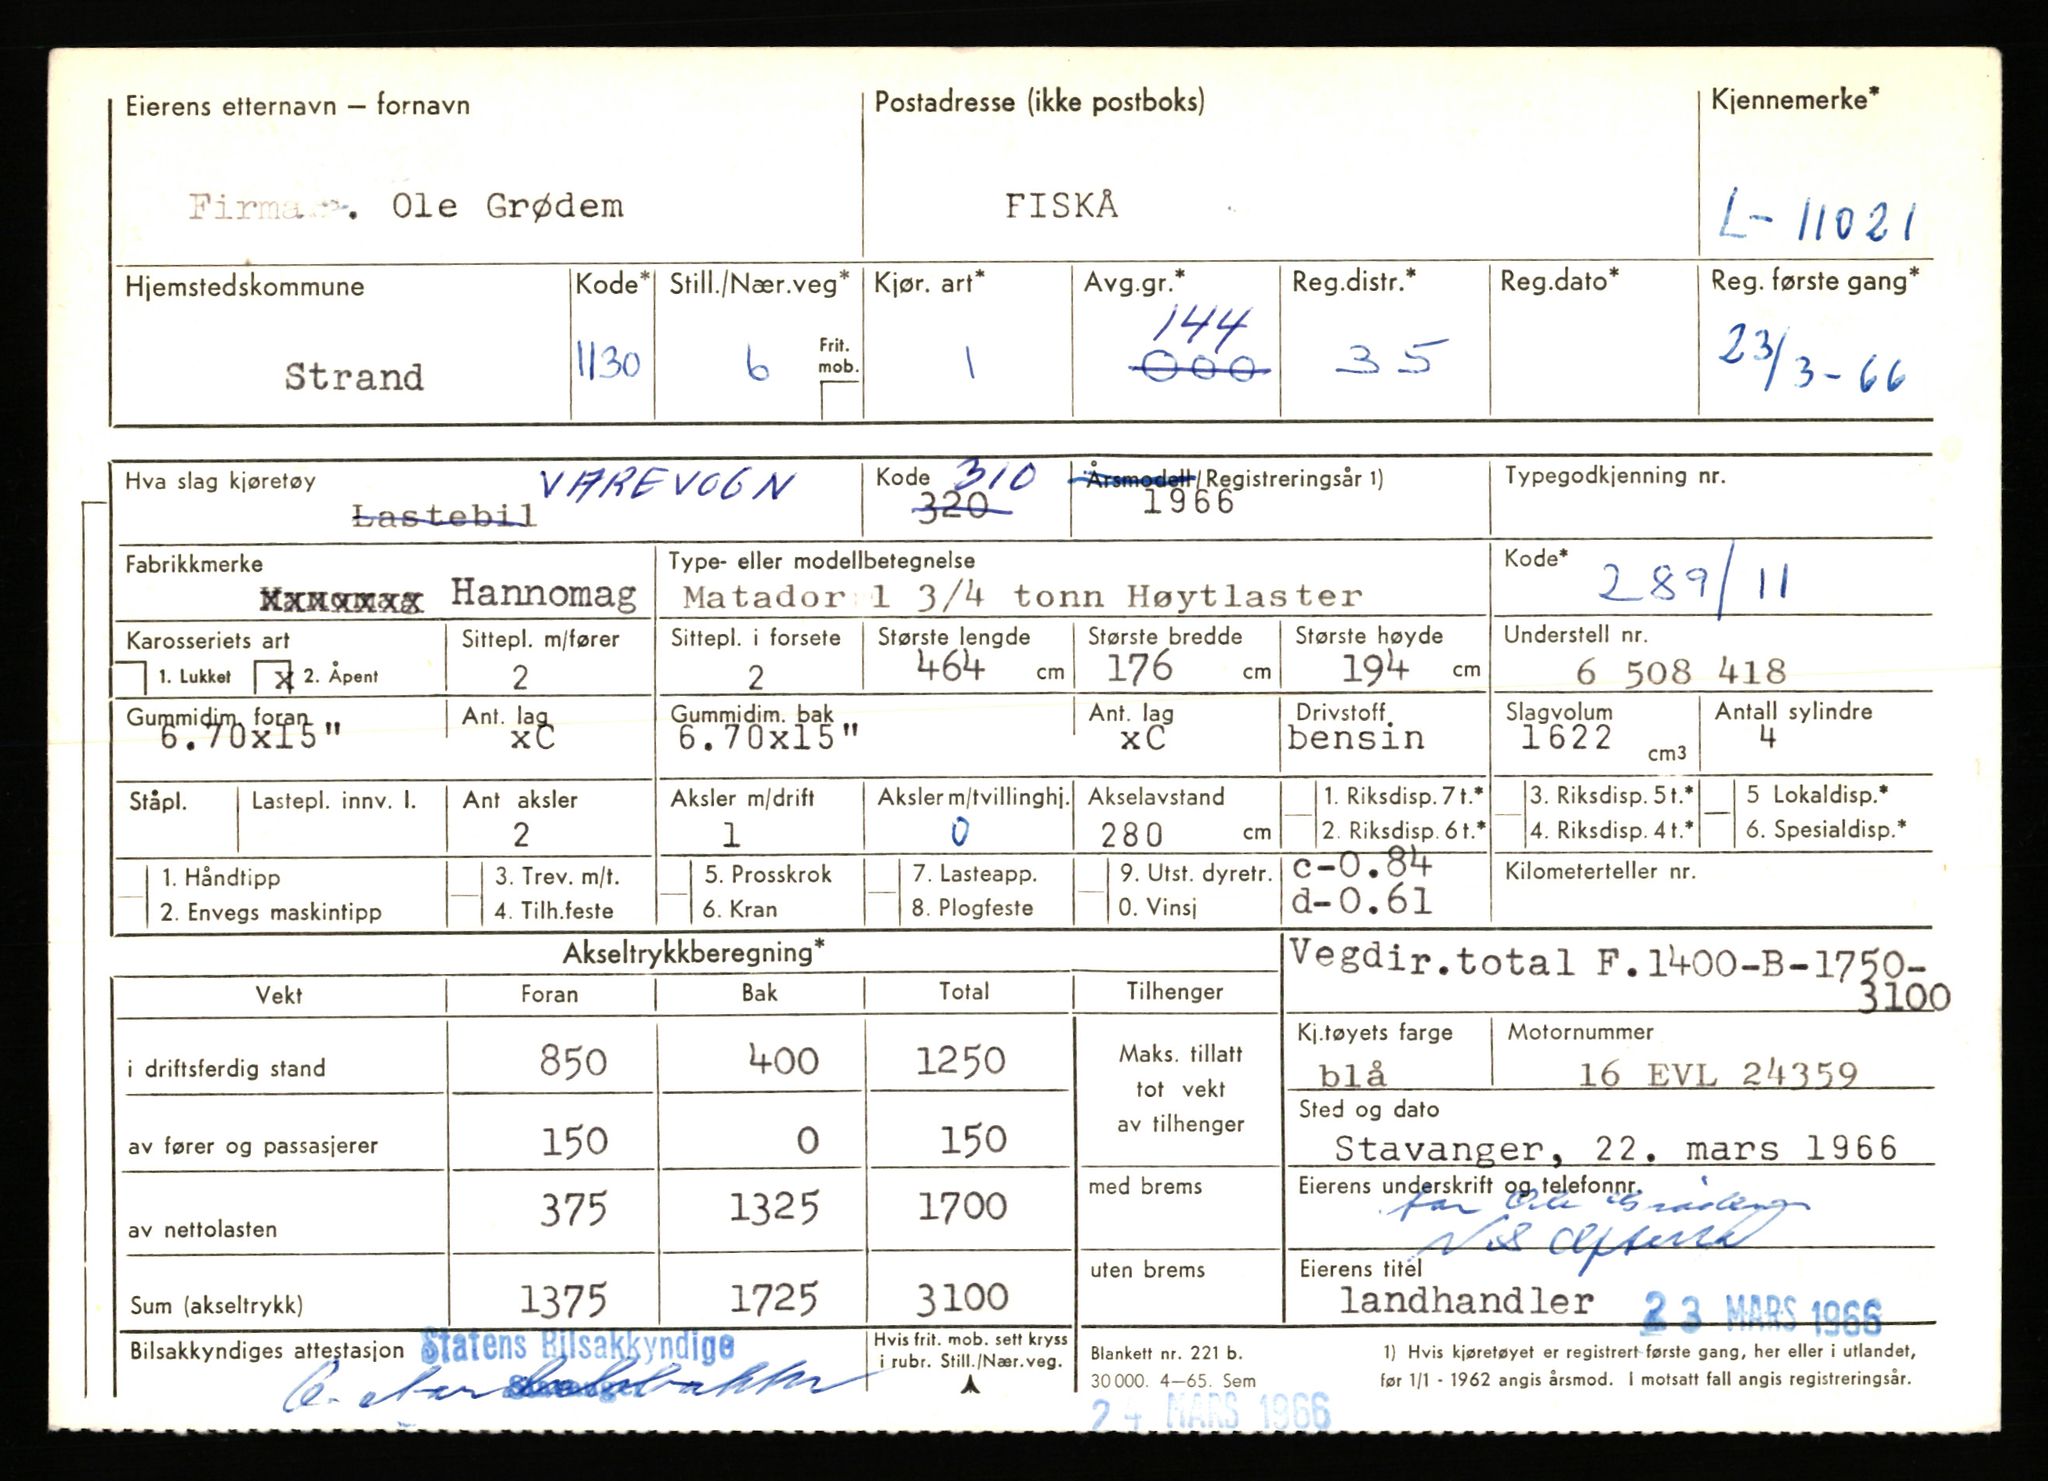 Eierens etternavn — fornavn
Postadresse (ikke postboks)
Kjennemerke*
Firma . Ole Grødem
FISKÅ
L- 11021
Hjemstedskommune
Kode*
Still./Nær.veg*
Kjør. art*
Avg.gr.*
Reg.distr.*
Reg.dato*
Reg. første gang*
Strand
1130
6
Frit. mob.
1
144
000
35
23/3-66
Hva slag kjøretøy
VAREVOGN
Lastebil
Kode 310
320
Årsmodell/Registreringsår 1)
1966
Typegodkjenning nr.
Fabrikkmerke
Hannomag
Type- eller modellbetegnelse
Matador 1 3/4 tonn Høytlaster
Kode*
289/11
Karosseriets art
1. Lukket x 2. Åpent
Sittepl. m/fører
2
Sittepl. i forsete
2
Største lengde
464 cm
Største bredde
176 cm
Største høyde
194 cm
Understell nr.
6 508 418
Gummidim. foran
6.70x15"
Ant. lag
xC
Gummidim. bak
6.70x15"
Ant. lag
xC
Drivstoff
bensin
Slagvolum
1622 cm3
Antall sylindre
4
Ståpl.
Lastepl. innv. l.
Ant aksler
2
Aksler m/drift
1
Aksler m/tvillinghj.
0
Akselavstand
280 cm
1. Riksdisp. 7 t.*
2. Riksdisp. 6 t.*
3. Riksdisp. 5 t.*
4. Riksdisp. 4 t.*
5 Lokaldisp.*
6. Spesialdisp.*
1. Håndtipp
2. Envegs maskintipp
3. Trev. m/t.
4. Tilh.feste
5. Prosskrok
6. Kran
7. Lasteapp.
8. Plogfeste
9. Utst. dyretr.
0. Vinsj
c-0.84
d-0.61
Kilometerteller nr.
Akseltrykkberegning*
Vegdir.total F.1400-B-1750-
3100
Vekt
Foran
Bak
Total
Tilhenger
i driftsferdig stand
850
400
1250
Maks. tillatt
tot vekt
av tilhenger
Kj.tøyets farge
blå
Motornummer
16 EVL 24359
av fører og passasjerer
150
0
150
Sted og dato
Stavanger, 22. mars 1966
av nettolasten
375
1325
1700
med brems
Eierens underskrift og telefonnr.
for Ole Grødem
Sum (akseltrykk)
1375
1725
3100
uten brems
Eierens titel
landhandler
23 MARS 1966
Bilsakkyndiges attestasjon
Statens Bilsakkyndige
Stavanger
Hvis frit. mob. sett kryss
i rubr. Still./Nær.veg.
Blankett nr. 221 b.
30 000. 4—65. Sem
24 MARS 1966
1) Hvis kjøretøyet er registrert første gang, her eller i utlandet,
før 1/1 - 1962 angis årsmod. I motsatt fall angis registreringsår.